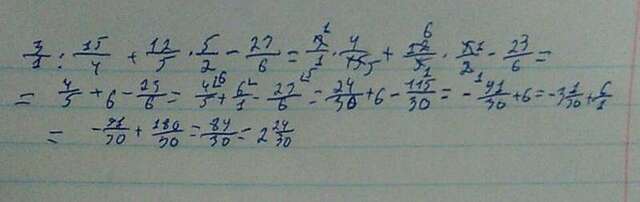 3/1 : 15/4 + 12/5 · 5/2 - 23/6 = 3/1 · 4/15 + 12/5 · 5/2 - 23/6 =
= 4/5 + 6 - 23/6 = 4/5 + 6/1 - 23/6 = 24/30 + 6 - 115/30 = - 91/30 + 6 = -3 1/30 + 6/1
= - 91/30 + 180/30 = 84/30 = 2 24/30